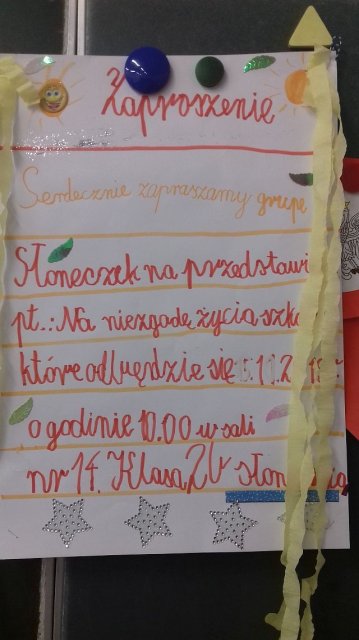 Zaproszenie
Serdecznie zapraszamy grupę
Słoneczek na przedstawi
pt.: Na niezgodę życia szko
które odbędzie się 5.11.2
o godzinie 10.00 w sali
nr 14. Klasa 2b